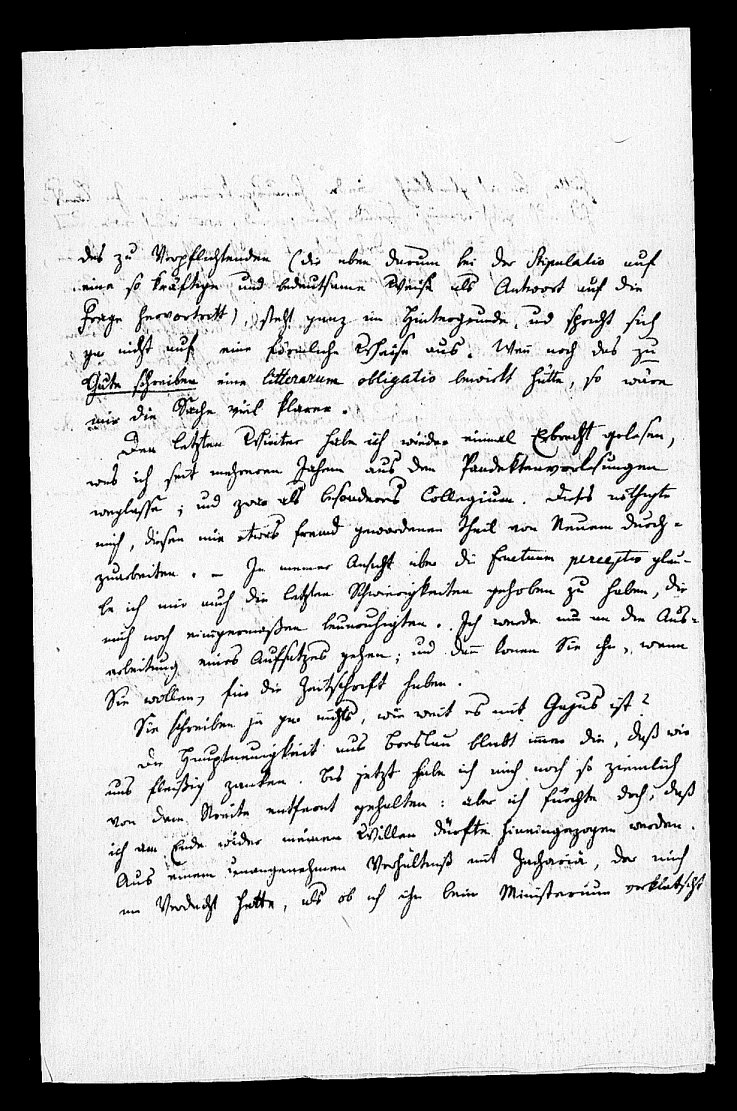 des zu Verpflichtenden (die eben darum bei der Stipulatio auf
eine so kräftige und bedeutsame Weise als Antwort auf die
Frage hervortritt), steht ganz im Hintergrunde, und spricht sich
gar nicht auf eine förmliche Weise aus. Wenn noch das zu
Gute schreiben eine litterarum obligatio bewirkt hätte, so wäre
mir die Sache viel klarer.
Den letzten Winter habe ich wieder einmal Erbrecht gelesen,
was ich seit mehreren Jahren aus den Pandektenvorlesungen
weglasse; und zwar als besonderes Collegium. Dieß nöthigte
mich, diesen mir etwas fremd gewordenen Theil von Neuem durch-
zuarbeiten. – In meiner Ansicht über die fructuum perceptio glau-
be ich mir auch die letzten Schwierigkeiten gehoben zu haben, die
mich noch einigermaßen beunruhigten. Ich werde nun an die Aus-
arbeitung eines Aufsatzes gehen; und dann können Sie ihn, wenn
Sie wollen, für die Zeitschrift haben.
Sie schreiben ja gar nichts, wie weit es mit Gajus ist?
Die Hauptneuigkeit aus Breslau bleibt immer die, daß wir
uns fleißig zanken. Bis jetzt habe ich mich noch so ziemlich
von dem Streite entfernt gehalten: aber ich fürchte doch, daß
ich am Ende wider meinen Willen dürfte hineingezogen werden.
Aus einem unangenehmen Verhältniß mit Zachariä, der mich
im Verdacht hatte, als ob ich ihn beim Ministerium verklatscht